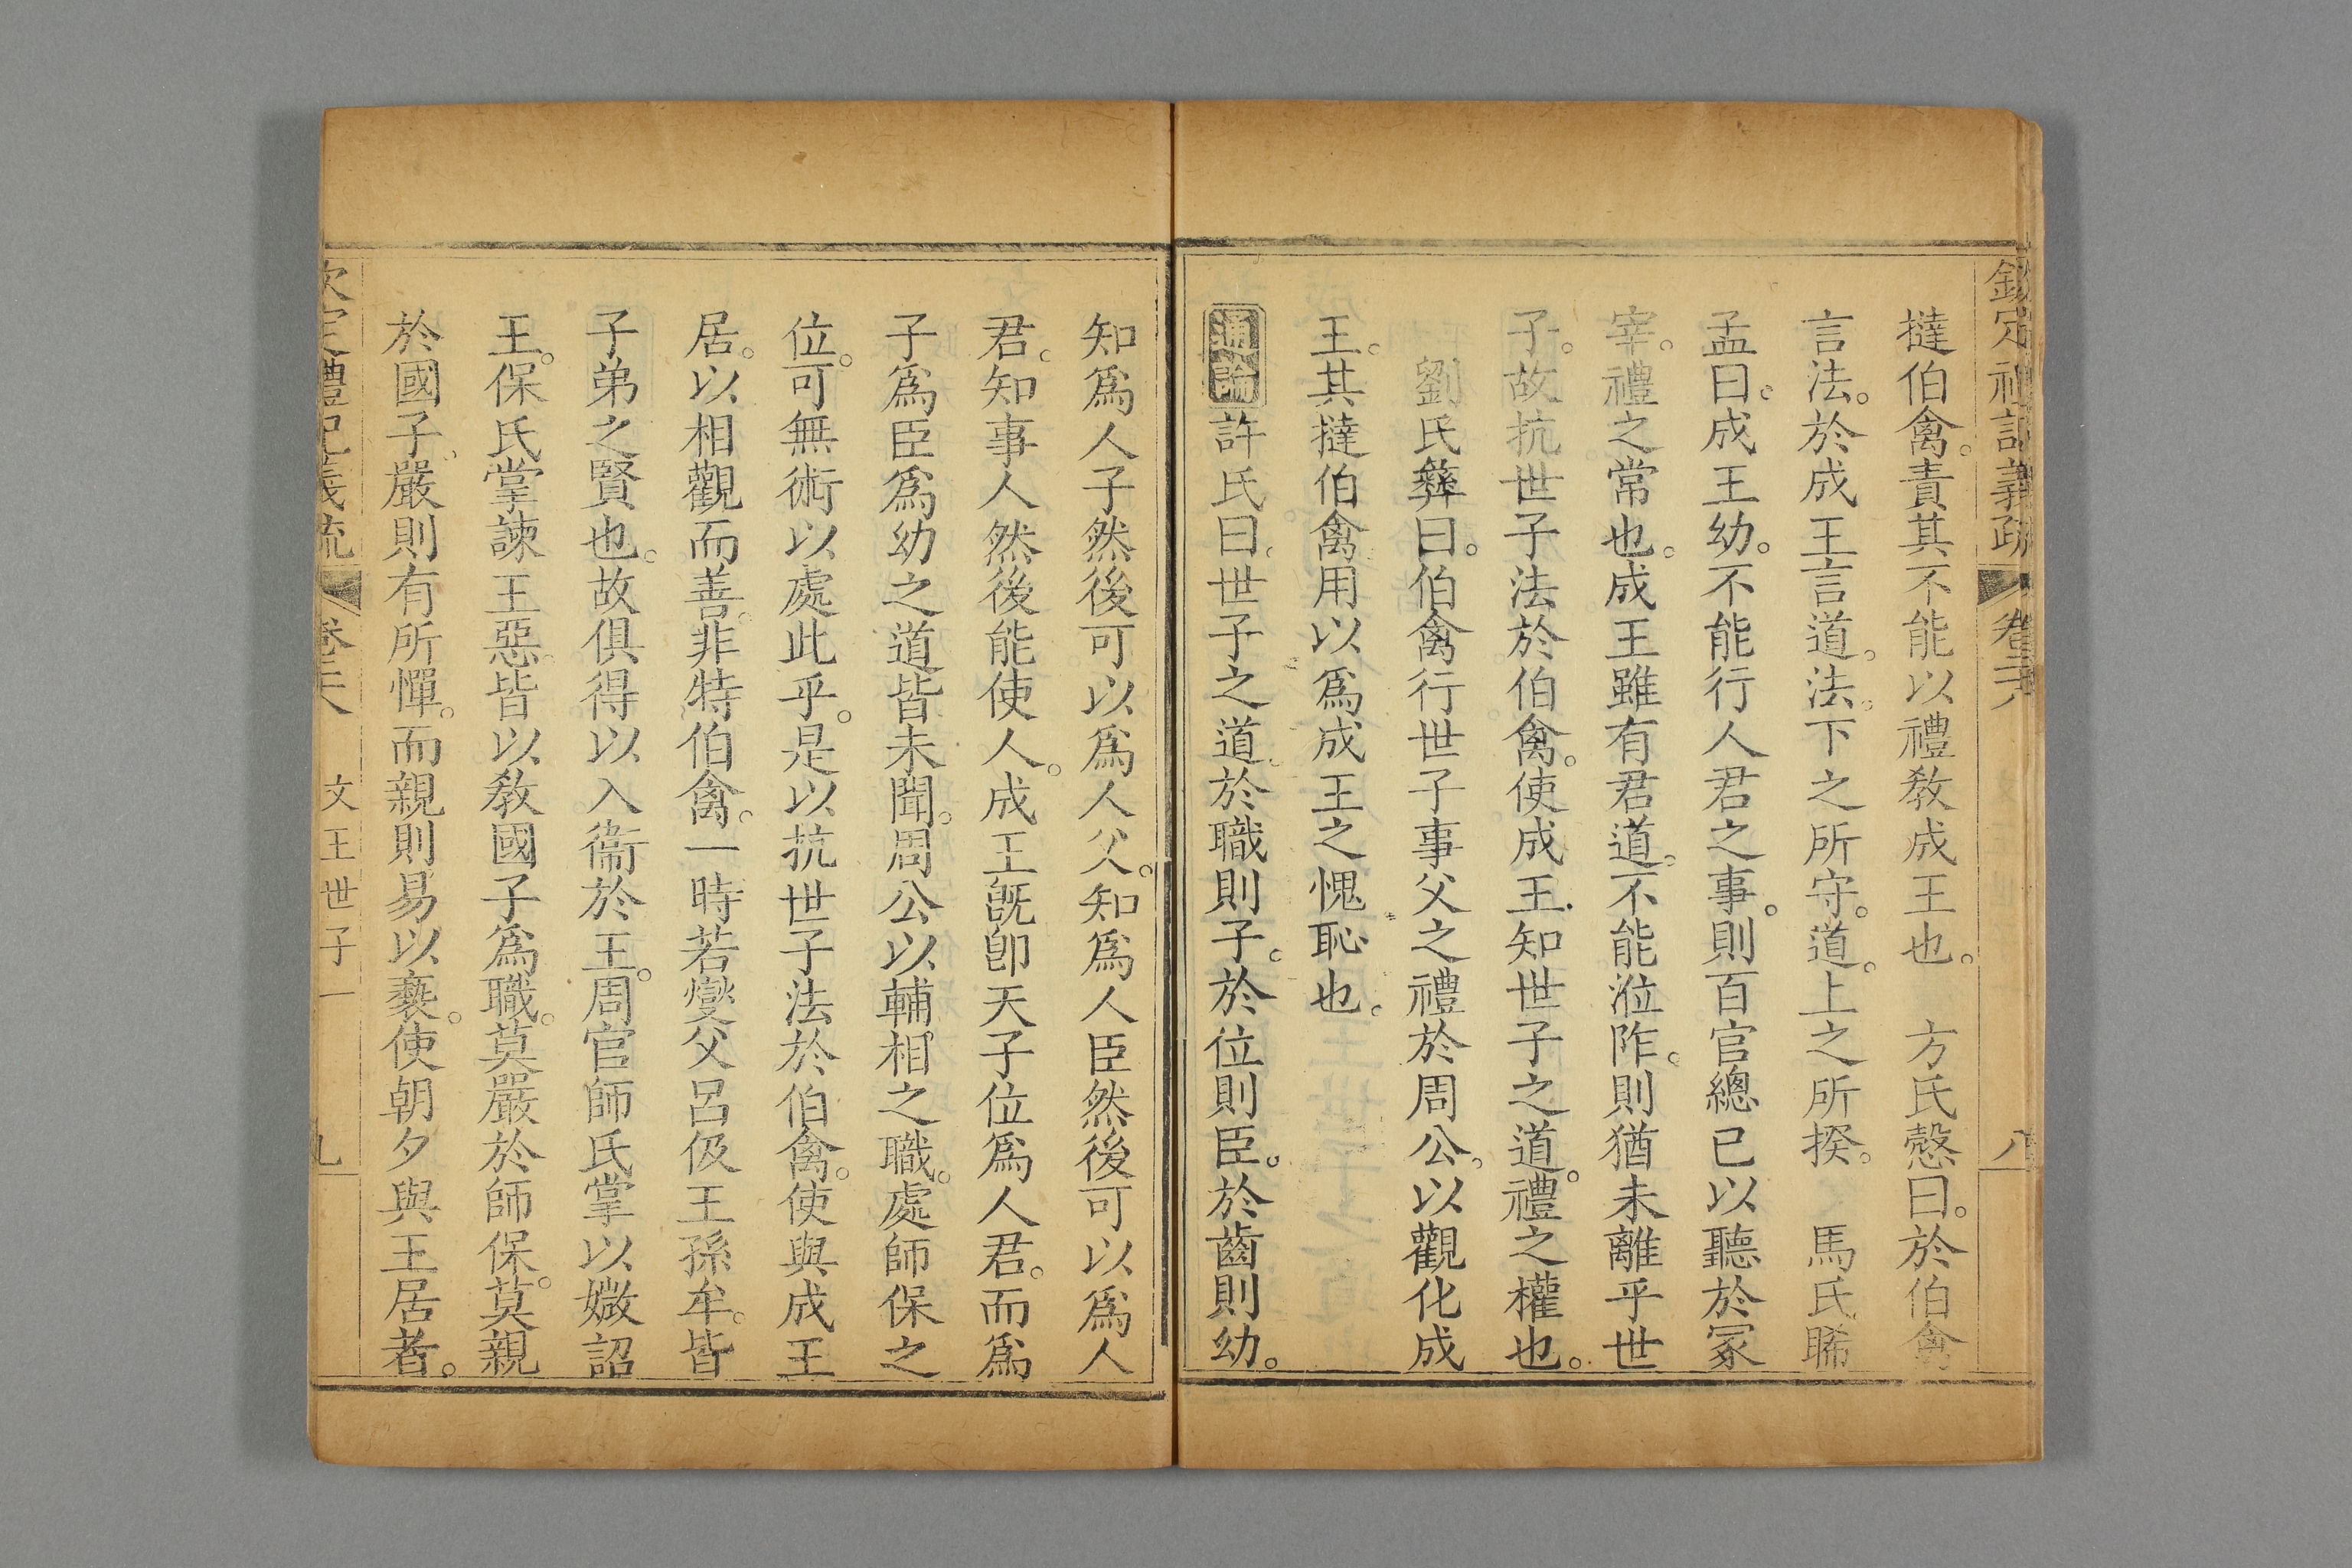 欽定禮記義疏 卷二十八 八
撻伯禽。責其不能以禮敎成王也。 方氏慤曰。於伯禽
言法。於成王言道。法。下之所守。道。上之所揆。 馬氏睎
孟曰。成王幼。不能行人君之事。則百官總已以聽於冢
宰。禮之常也。成王雖有君道。不能涖阼。則猶未離乎世
子。故抗世子法於伯禽。使成王知世子之道。禮之權也。
劉氏彝曰。伯禽行世子事父之禮於周公。以觀化成
王。其撻伯禽用以爲成王之愧恥也。
通論許氏曰。世子之道。於職則子。於位則臣。於齒則幼。
知爲人子然後可以爲人父。知爲人臣然後可以爲人
君。知事人然後能使人。成王旣卽天子位爲人君。而爲
子爲臣爲幼之道皆未聞。周公以輔相之職。處師保之
位。可無術以處此乎。是以抗世子法於伯禽。使與成王
居。以相觀而善。非特伯禽。一時若燮父呂伋王孫牟。皆
子弟之賢也。故俱得以入衞於王。周官師氏掌以媺詔
王。保氏掌諫王惡。皆以敎國子爲職。莫嚴於師保。莫親
於國子。嚴則有所憚。而親則易以褻。使朝夕與王居者。
欽定禮記義疏 卷二十八 文王世子一 九